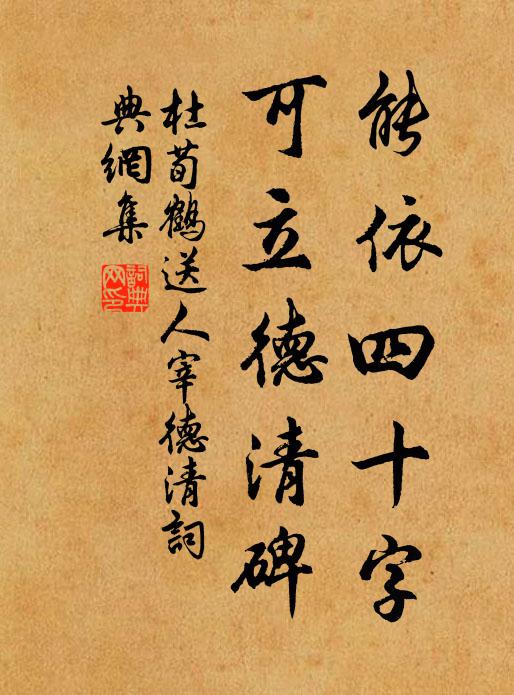 能依四十字
可立德清碑
杜荀鶴送人宰德清詞
典網集
詞典
网印